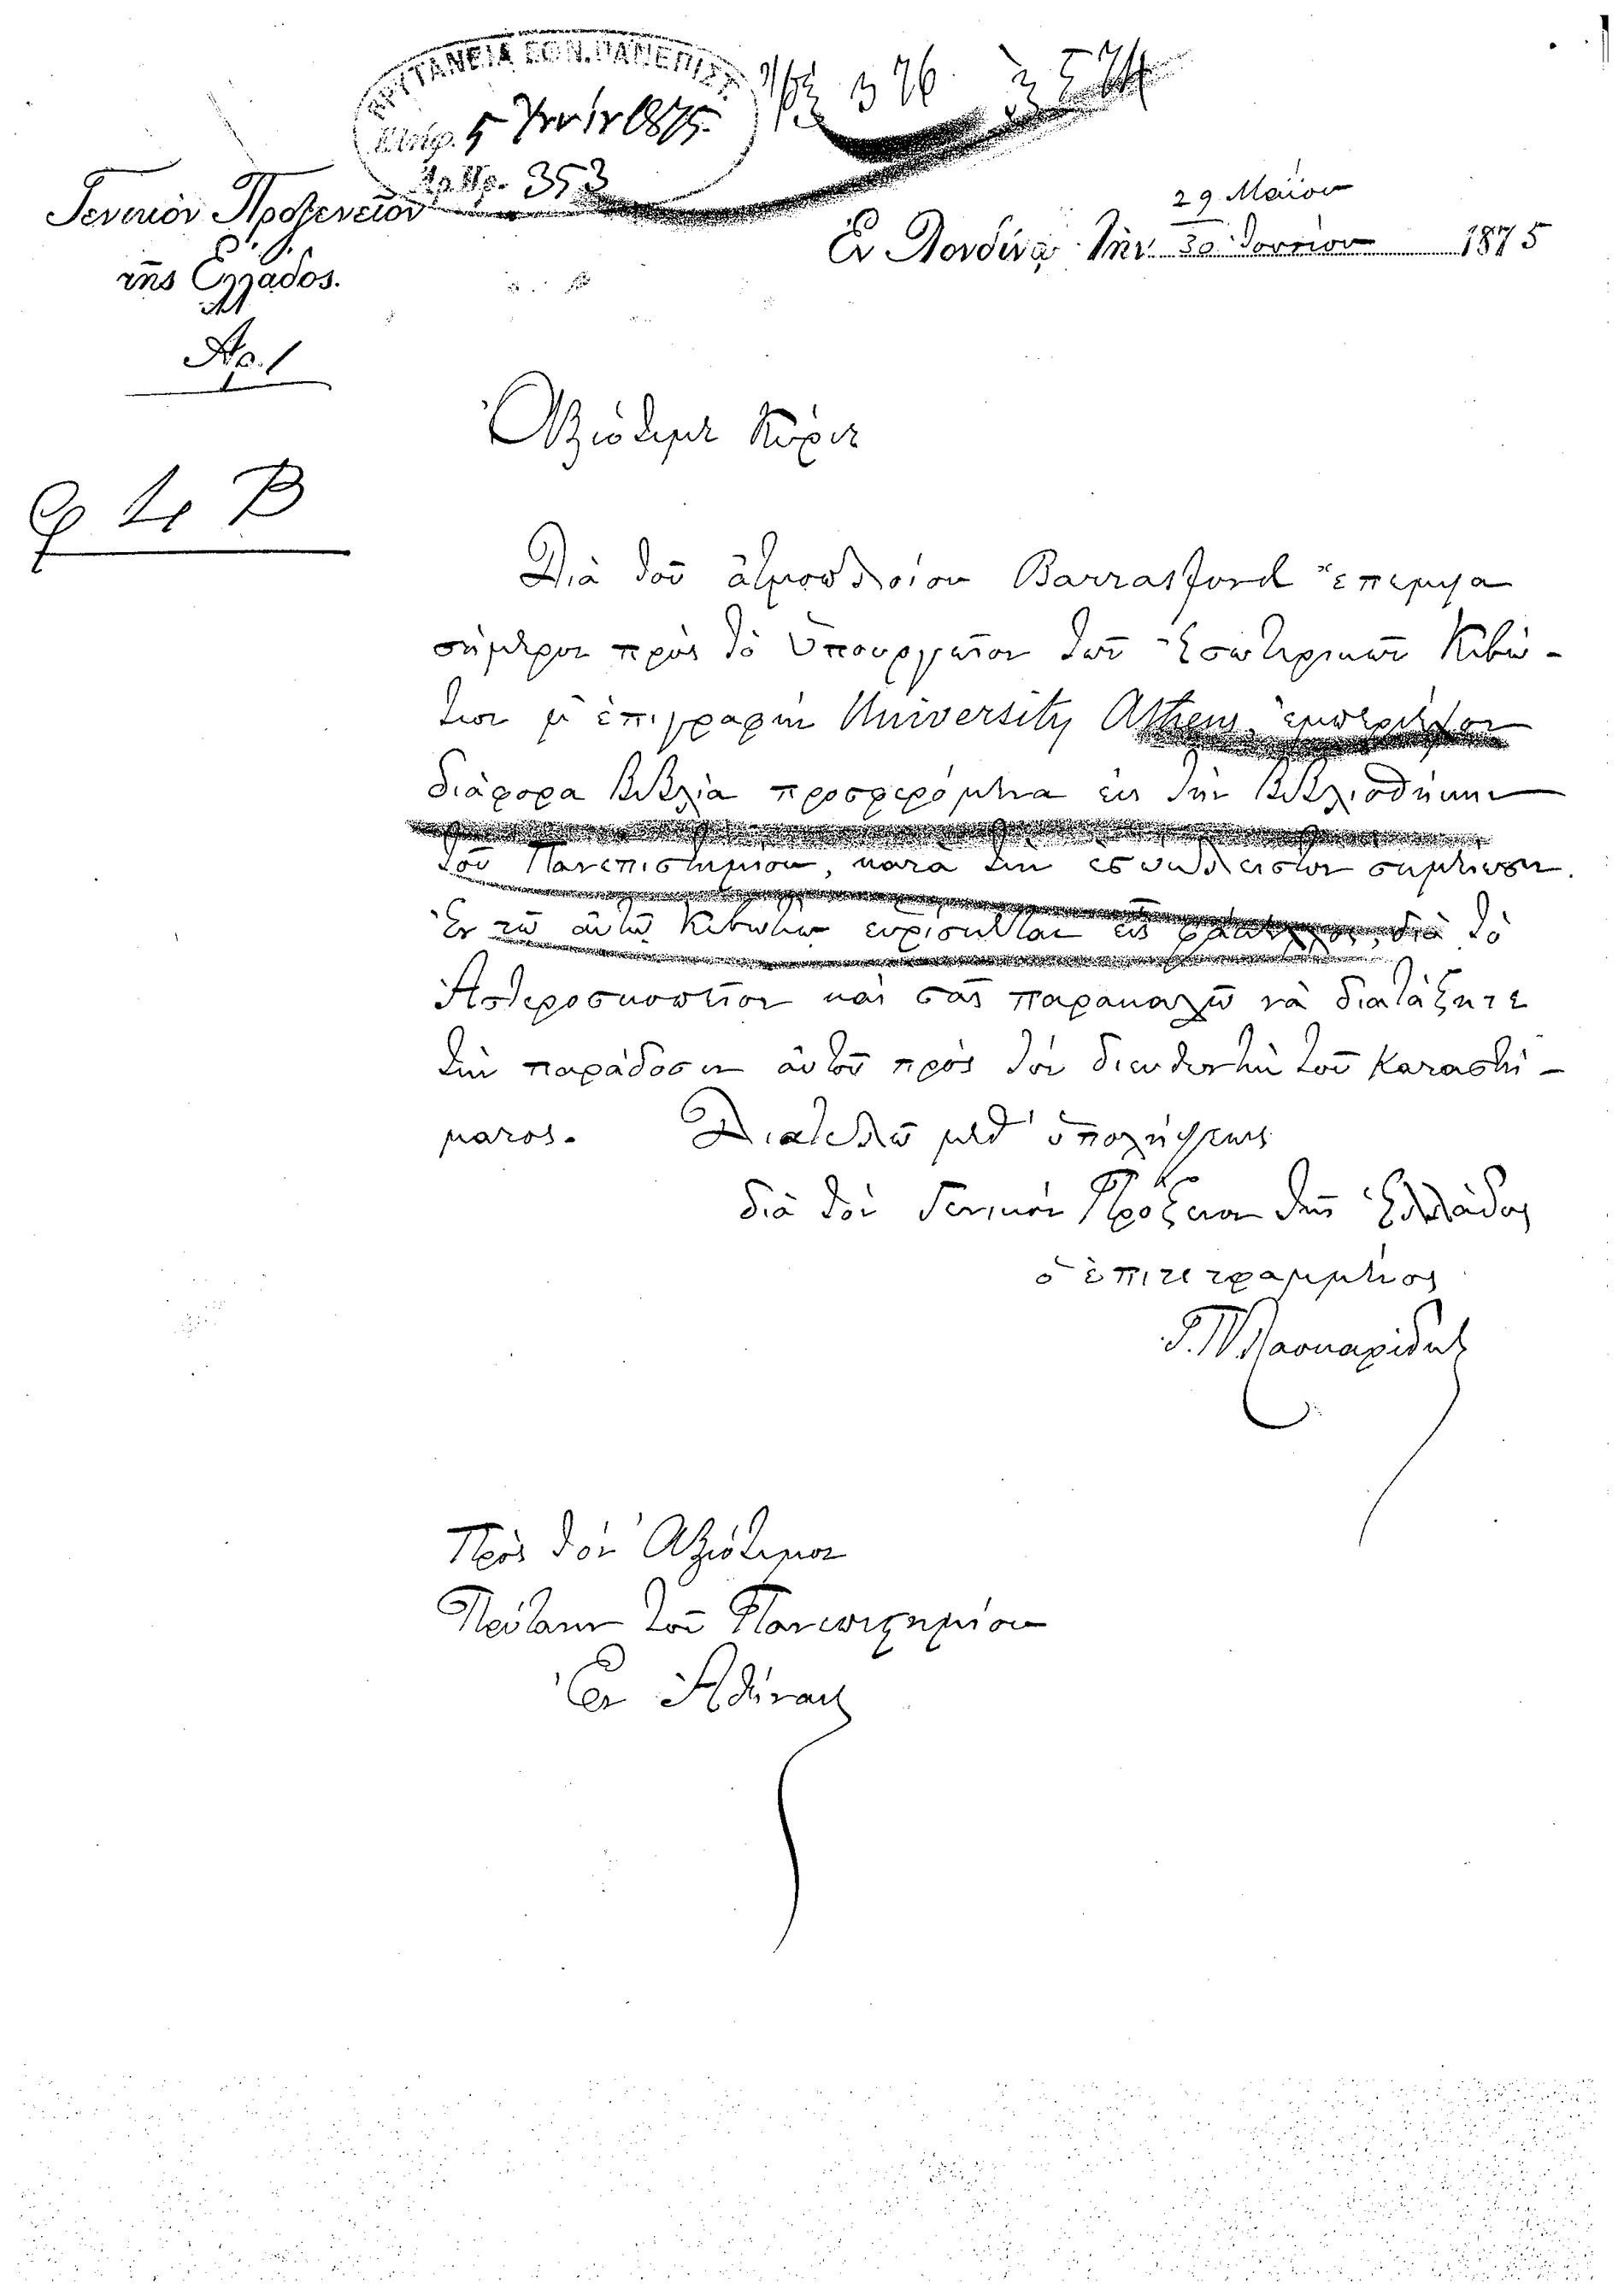 ΠΡΥΤΑΝΕΙΑ ΕΘΝ. ΠΑΝΕΠΙΣΤ.
5 1875
Αρ. Πρ. 353
376 574
Γενικόν Προξενείον
τῆς Ελλάδος.
Αρ. 1
29 Μαΐου
Ἐν Λονδίνῳ τὴν 30 Ιουνίου 1875
Ἀξιότιμε Κύριε
Διὰ τοῦ ἀτμοπλοίου Barrasford ἔπεμψα
σήμερον πρὸς τὸ Ὑπουργεῖον τῶν Ἐσωτερικῶν Κιβώ-
τιον μὲ ἐπιγραφὴν University Athens ἐμπεριέχον
διάφορα Βιβλία προσφερόμενα εἰς τὴν Βιβλιοθήκην
τοῦ Πανεπιστημίου, κατὰ τὴν ἐσώκλειστον σημείωσιν.
Ἐν τῷ αὐτῷ Κιβωτίῳ εὑρίσκεται εἷς φάκελλος, διὰ τὸ
Ἀστεροσκοπεῖον καὶ σᾶς παρακαλῶ νὰ διατάξητε
τὴν παράδοσιν αὐτοῦ πρὸς τὸν διευθυντὴν τοῦ Καταστή-
ματος. Διατελῶ μεθ' ὑπολήψεως
διὰ τὸν Γενικὸν Πρόξενον τῆς Ἑλλάδος
ὁ ἐπιτετραμμένος
Πρὸς τὸν Ἀξιότιμον
Πρύτανιν τοῦ Πανεπιστημίου
Ἐν Ἀθήναις